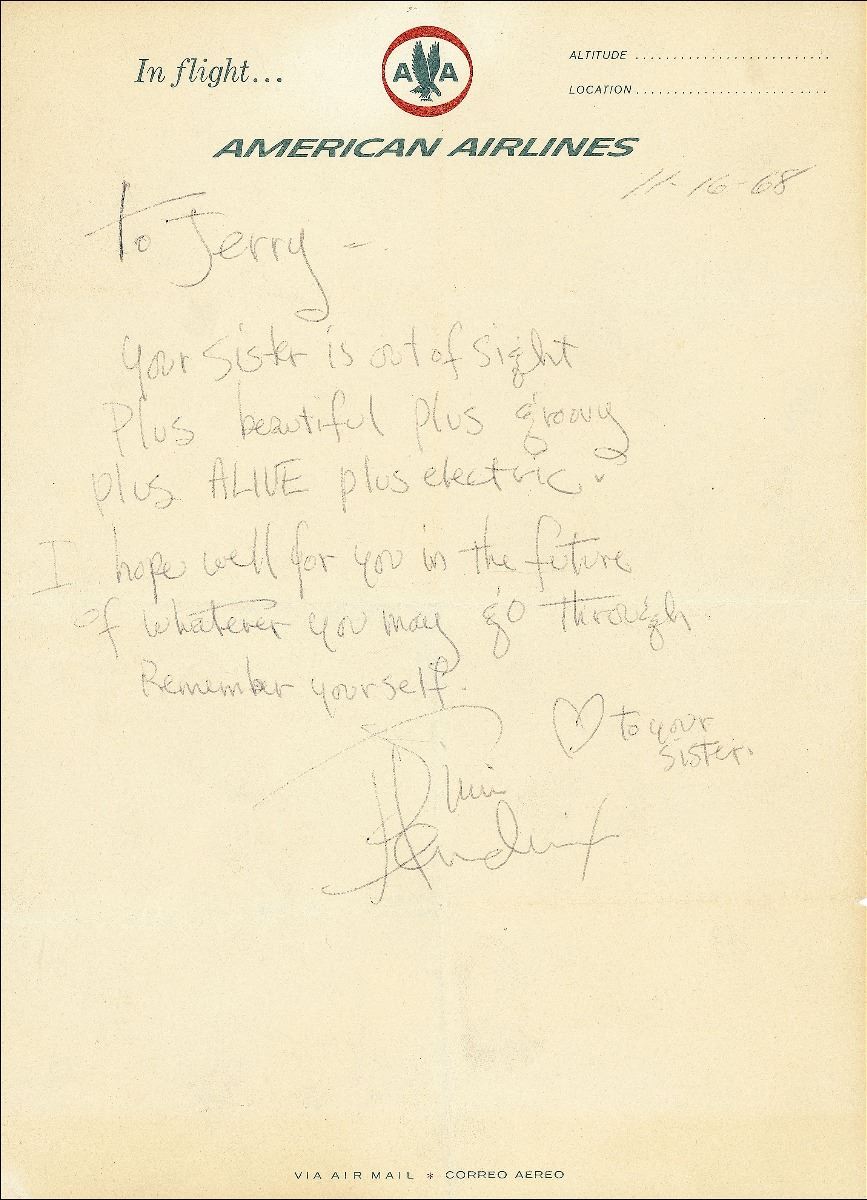 In flight...
A A
AMERICAN AIRLINES
ALTITUDE ..............................
LOCATION ..............................
11-16-68
To Jerry –
Your sister is out of sight
Plus beautiful plus groovy
plus ALIVE plus electric.
I hope well for you in the future
of whatever you may go through
Remember yourself.
♡ to your
sister.
Jimi
Hendrix
VIA AIR MAIL * CORREO AEREO